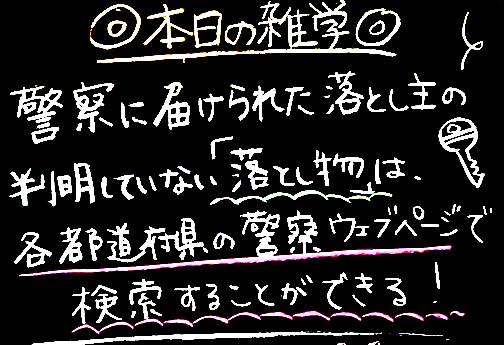 ◎本日の雑学◎
警察に届けられた落とし主の
判明していない「落とし物」は、
各都道府県の警察ウェブページで
検索することができる！